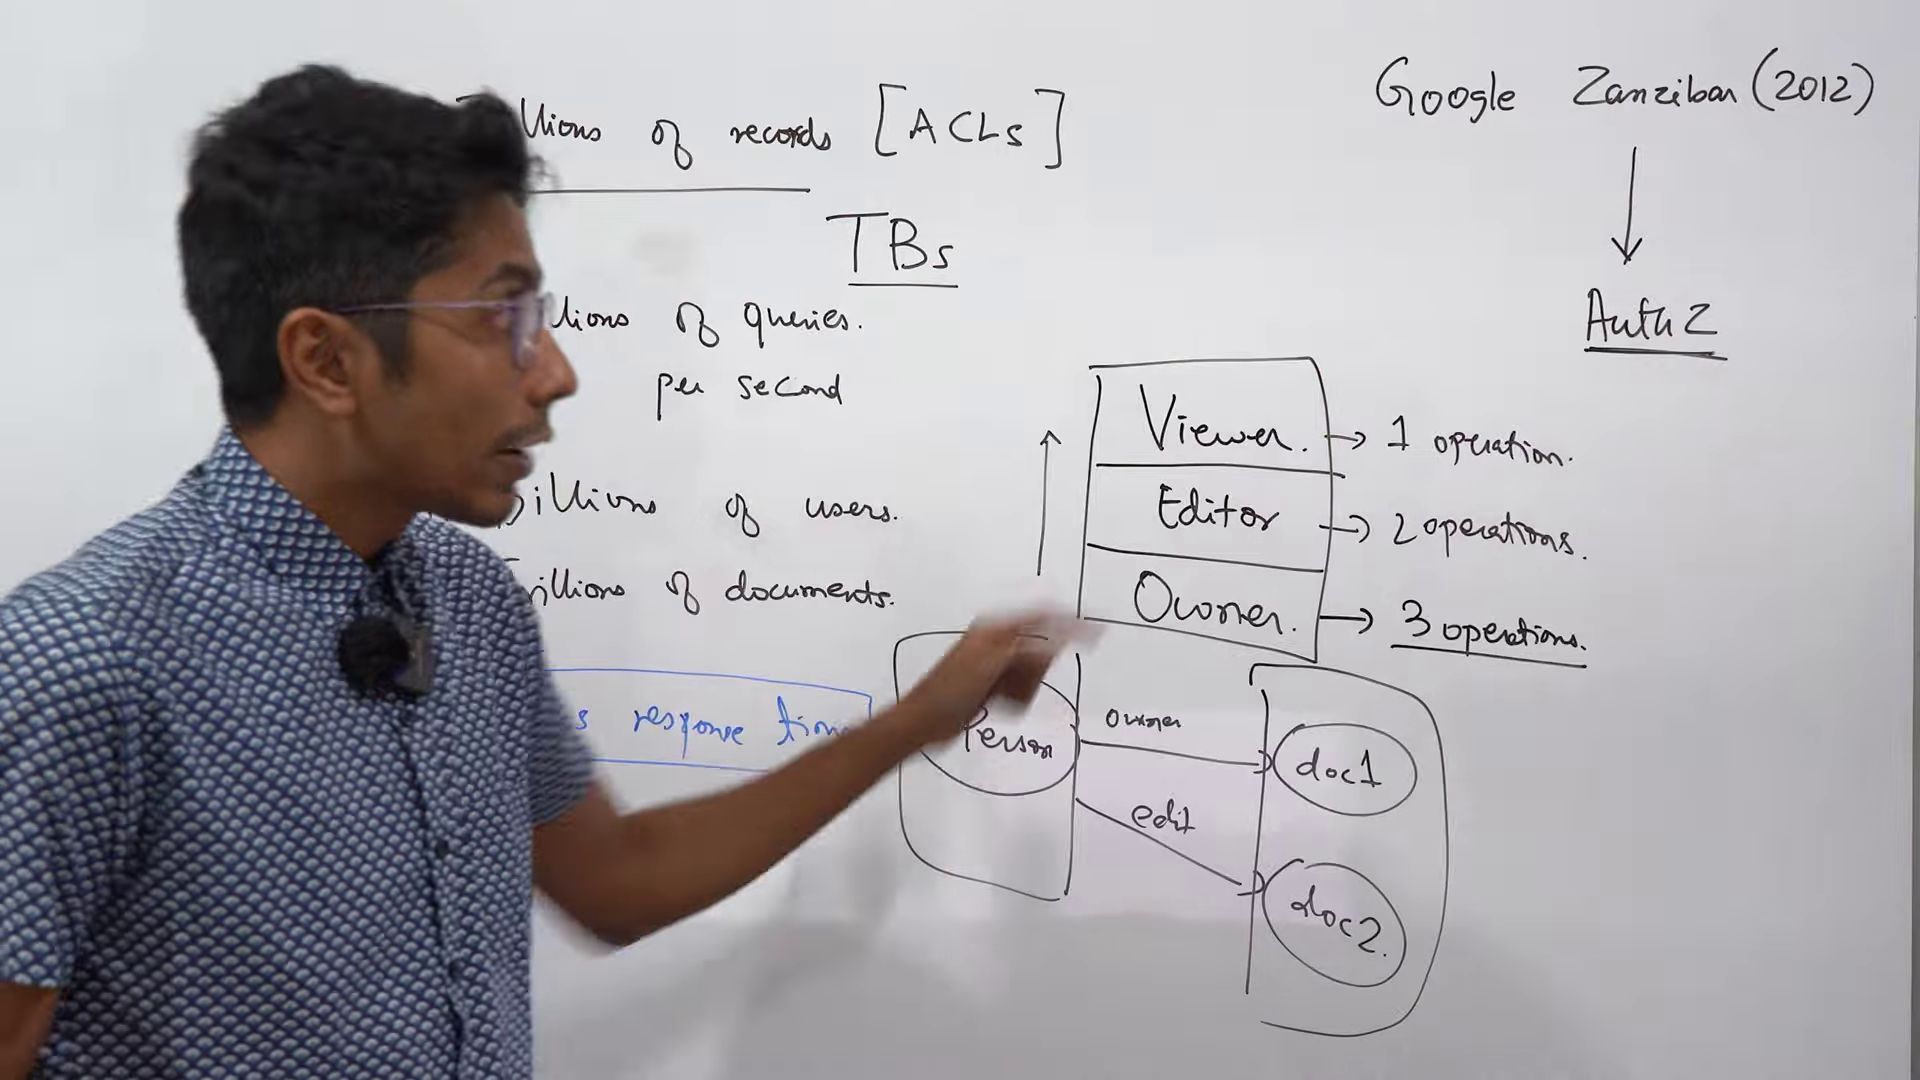 of records [ACLs]
TBs
of queries.
per second
of users.
of documents.
response
Google Zanzibar (2012)
AuthZ
Viewer. → 1 operation.
Editor → 2 operations.
Owner. → 3 operations.
Person
owner
edit
doc1
doc2.